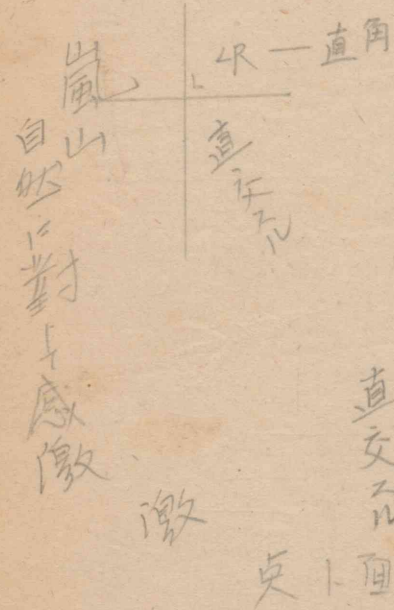 ∠R — 直角
直交スル
嵐山
自然に對し感激
激
直交スル
点ト面